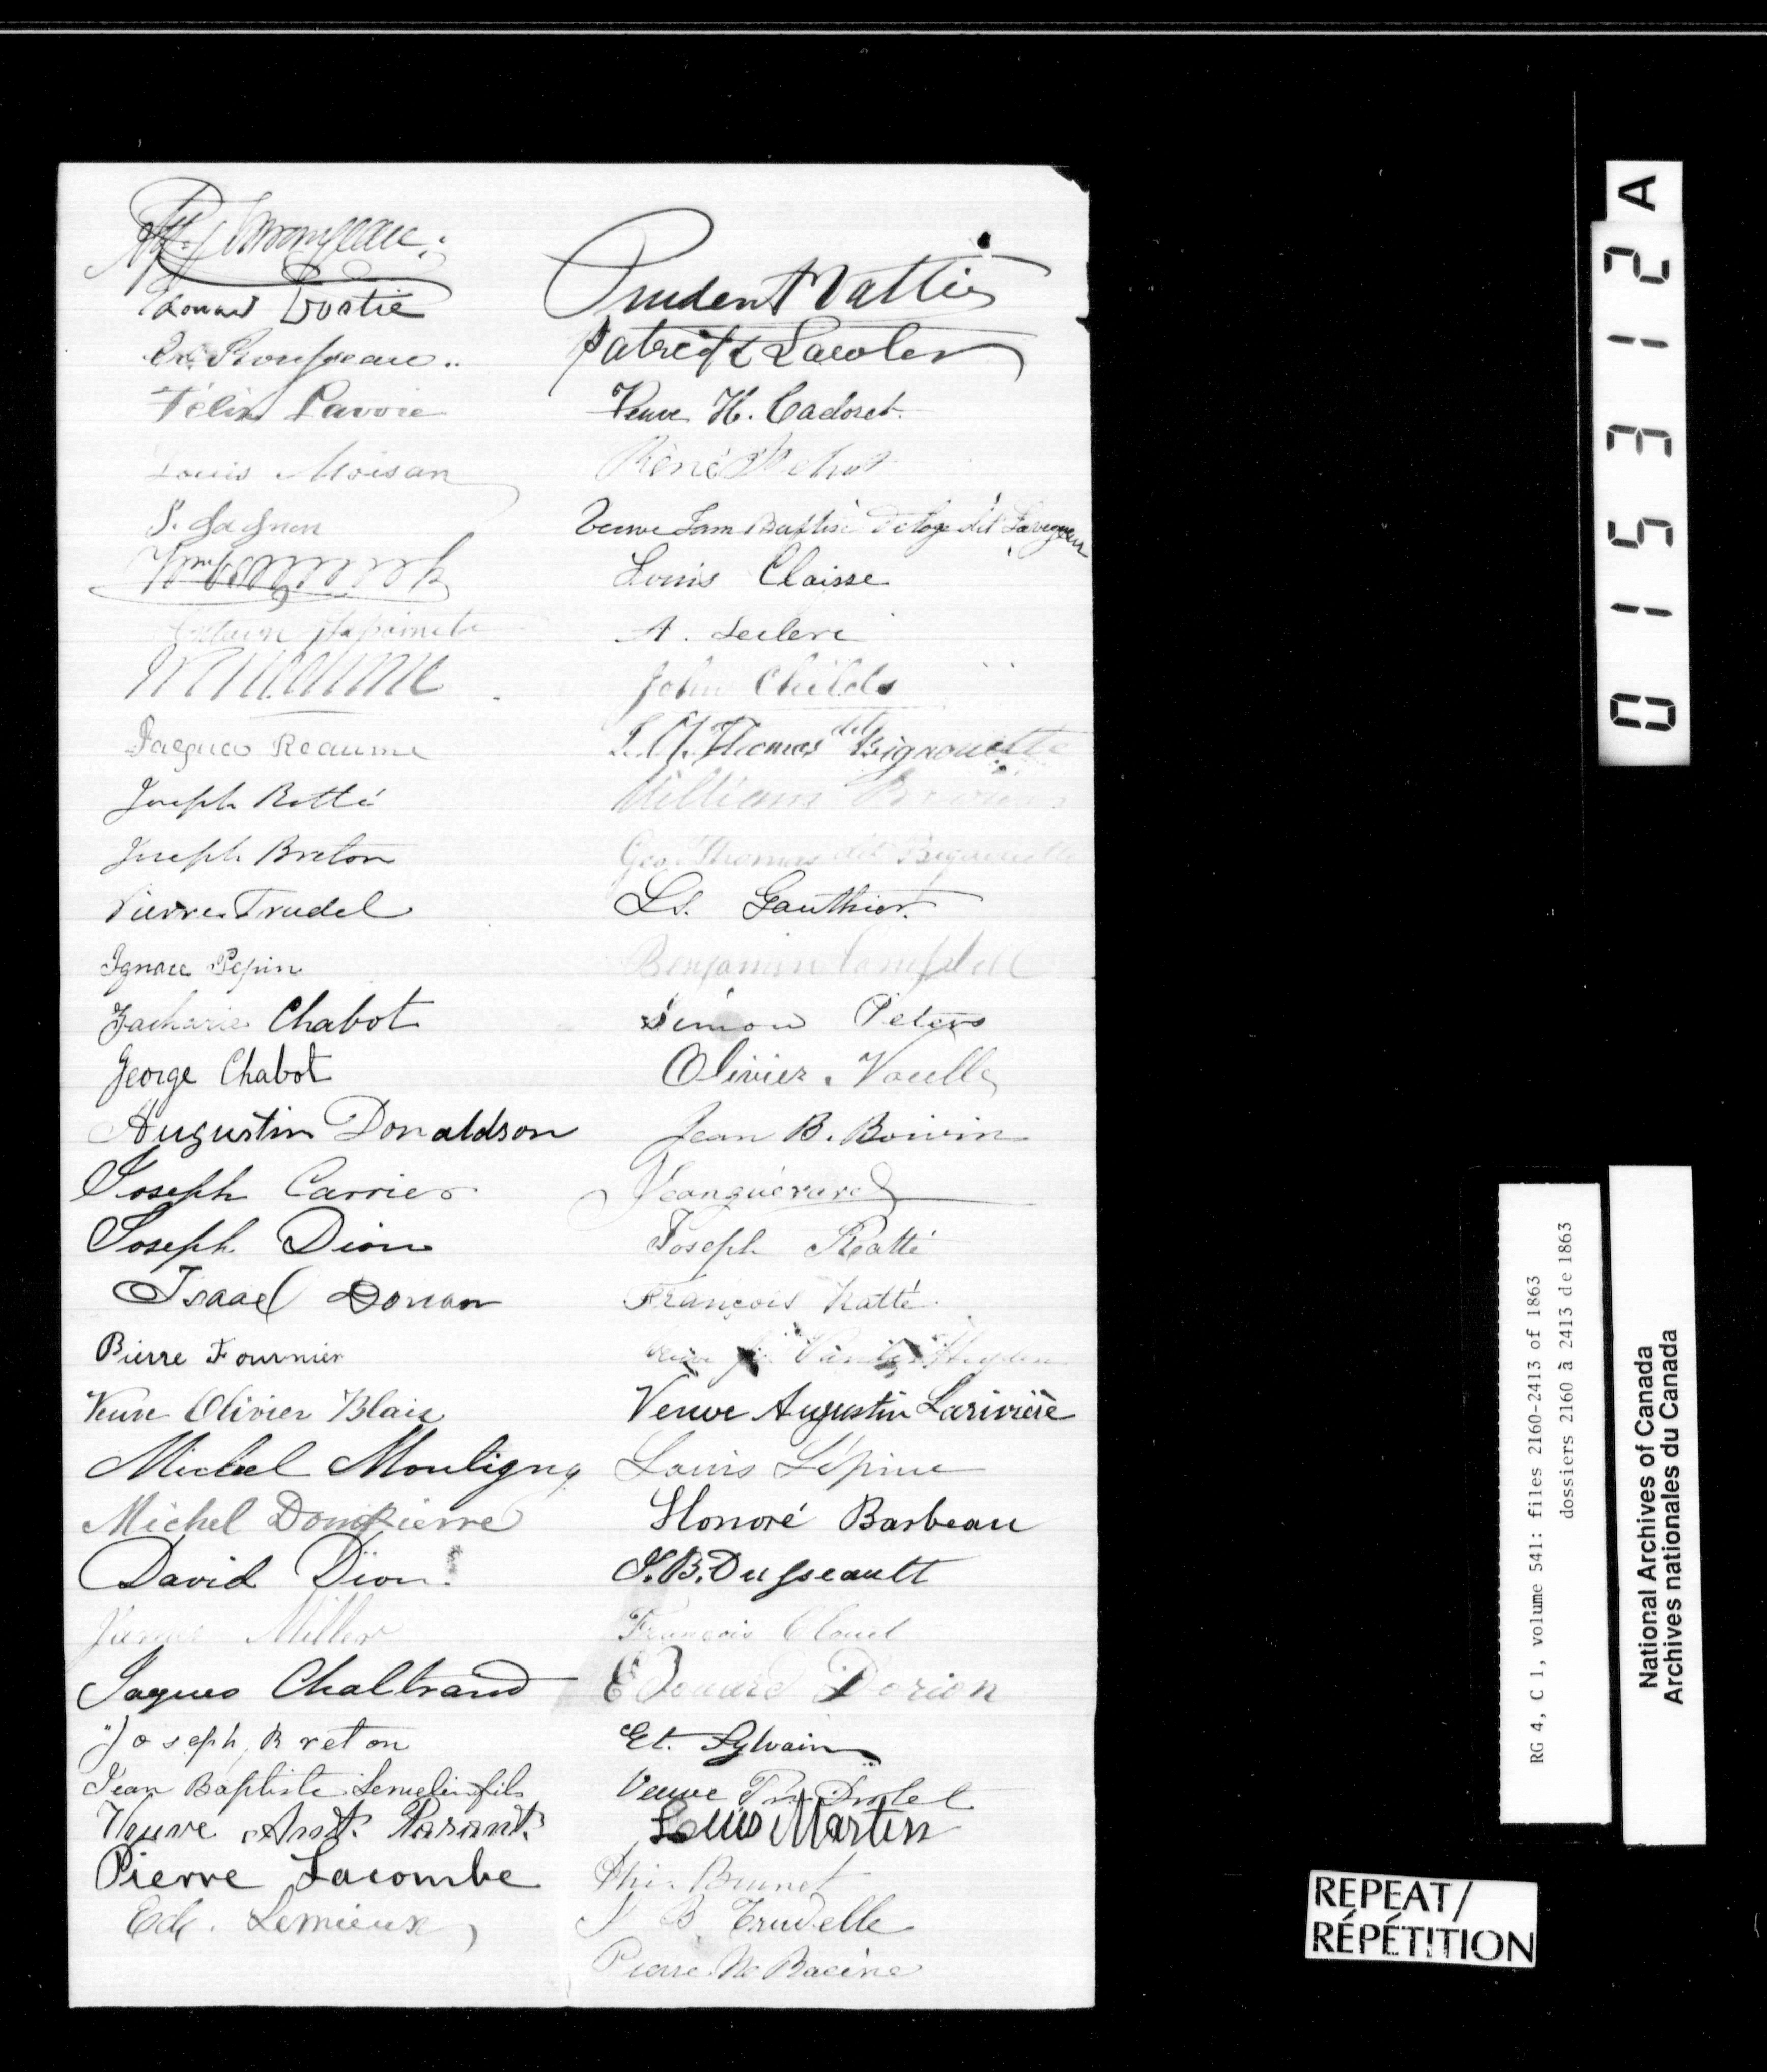 Edouard Dostie
Félix Lavoie
Louis Moisan
P. Gagnon
Jacques Reaume
Joseph Ratté
Joseph Breton
Pierre Trudel
Ignace Pepin
Zacharie Chabot
George Chabot
Augustin Donaldson
Joseph Carrier
Joseph Dion
Isaac Dorian
Pierre Fournier
Veuve Olivier Blais
Michel Montigny
Michel Dompierre
David Dion
James Miller
Jaques Chaltrand
Joseph Breton
Jean Baptiste Lemelin fils
Veuve Ant. Parant
Pierre Lacombe
Ed. Lemieux
Prudent Vallié
Patrick
Veuve H. Cadoret
René
Veuve Jean Baptise dit
Louis Claisse
A. Leclerc
John Childs
Thomas dit Bigaouette
William Brown
Geo. Thomas dit Bigaouette
Ls. Gauthier
Benjamin Campbell
Simon Peters
Olivier
Jean B. Boivin
Jean guérard
Joseph Ratté
François Ratté
Veuve Augustin Larivière
Louis Lépine
Honoré Barbeau
J.B. Dusseault
François Clouet
Edouard Dorion
Et. Sylvain
Veuve Drolet
Louis Martin
Phi. Brunet
J B Trudelle
Pierre Racine
A
015312
RG 4, C 1, volume 541: files 2160-2413 of 1863
dossiers 2160 à 2413 de 1863
National Archives of Canada
Archives nationales du Canada
REPEAT/
RÉPÉTITION